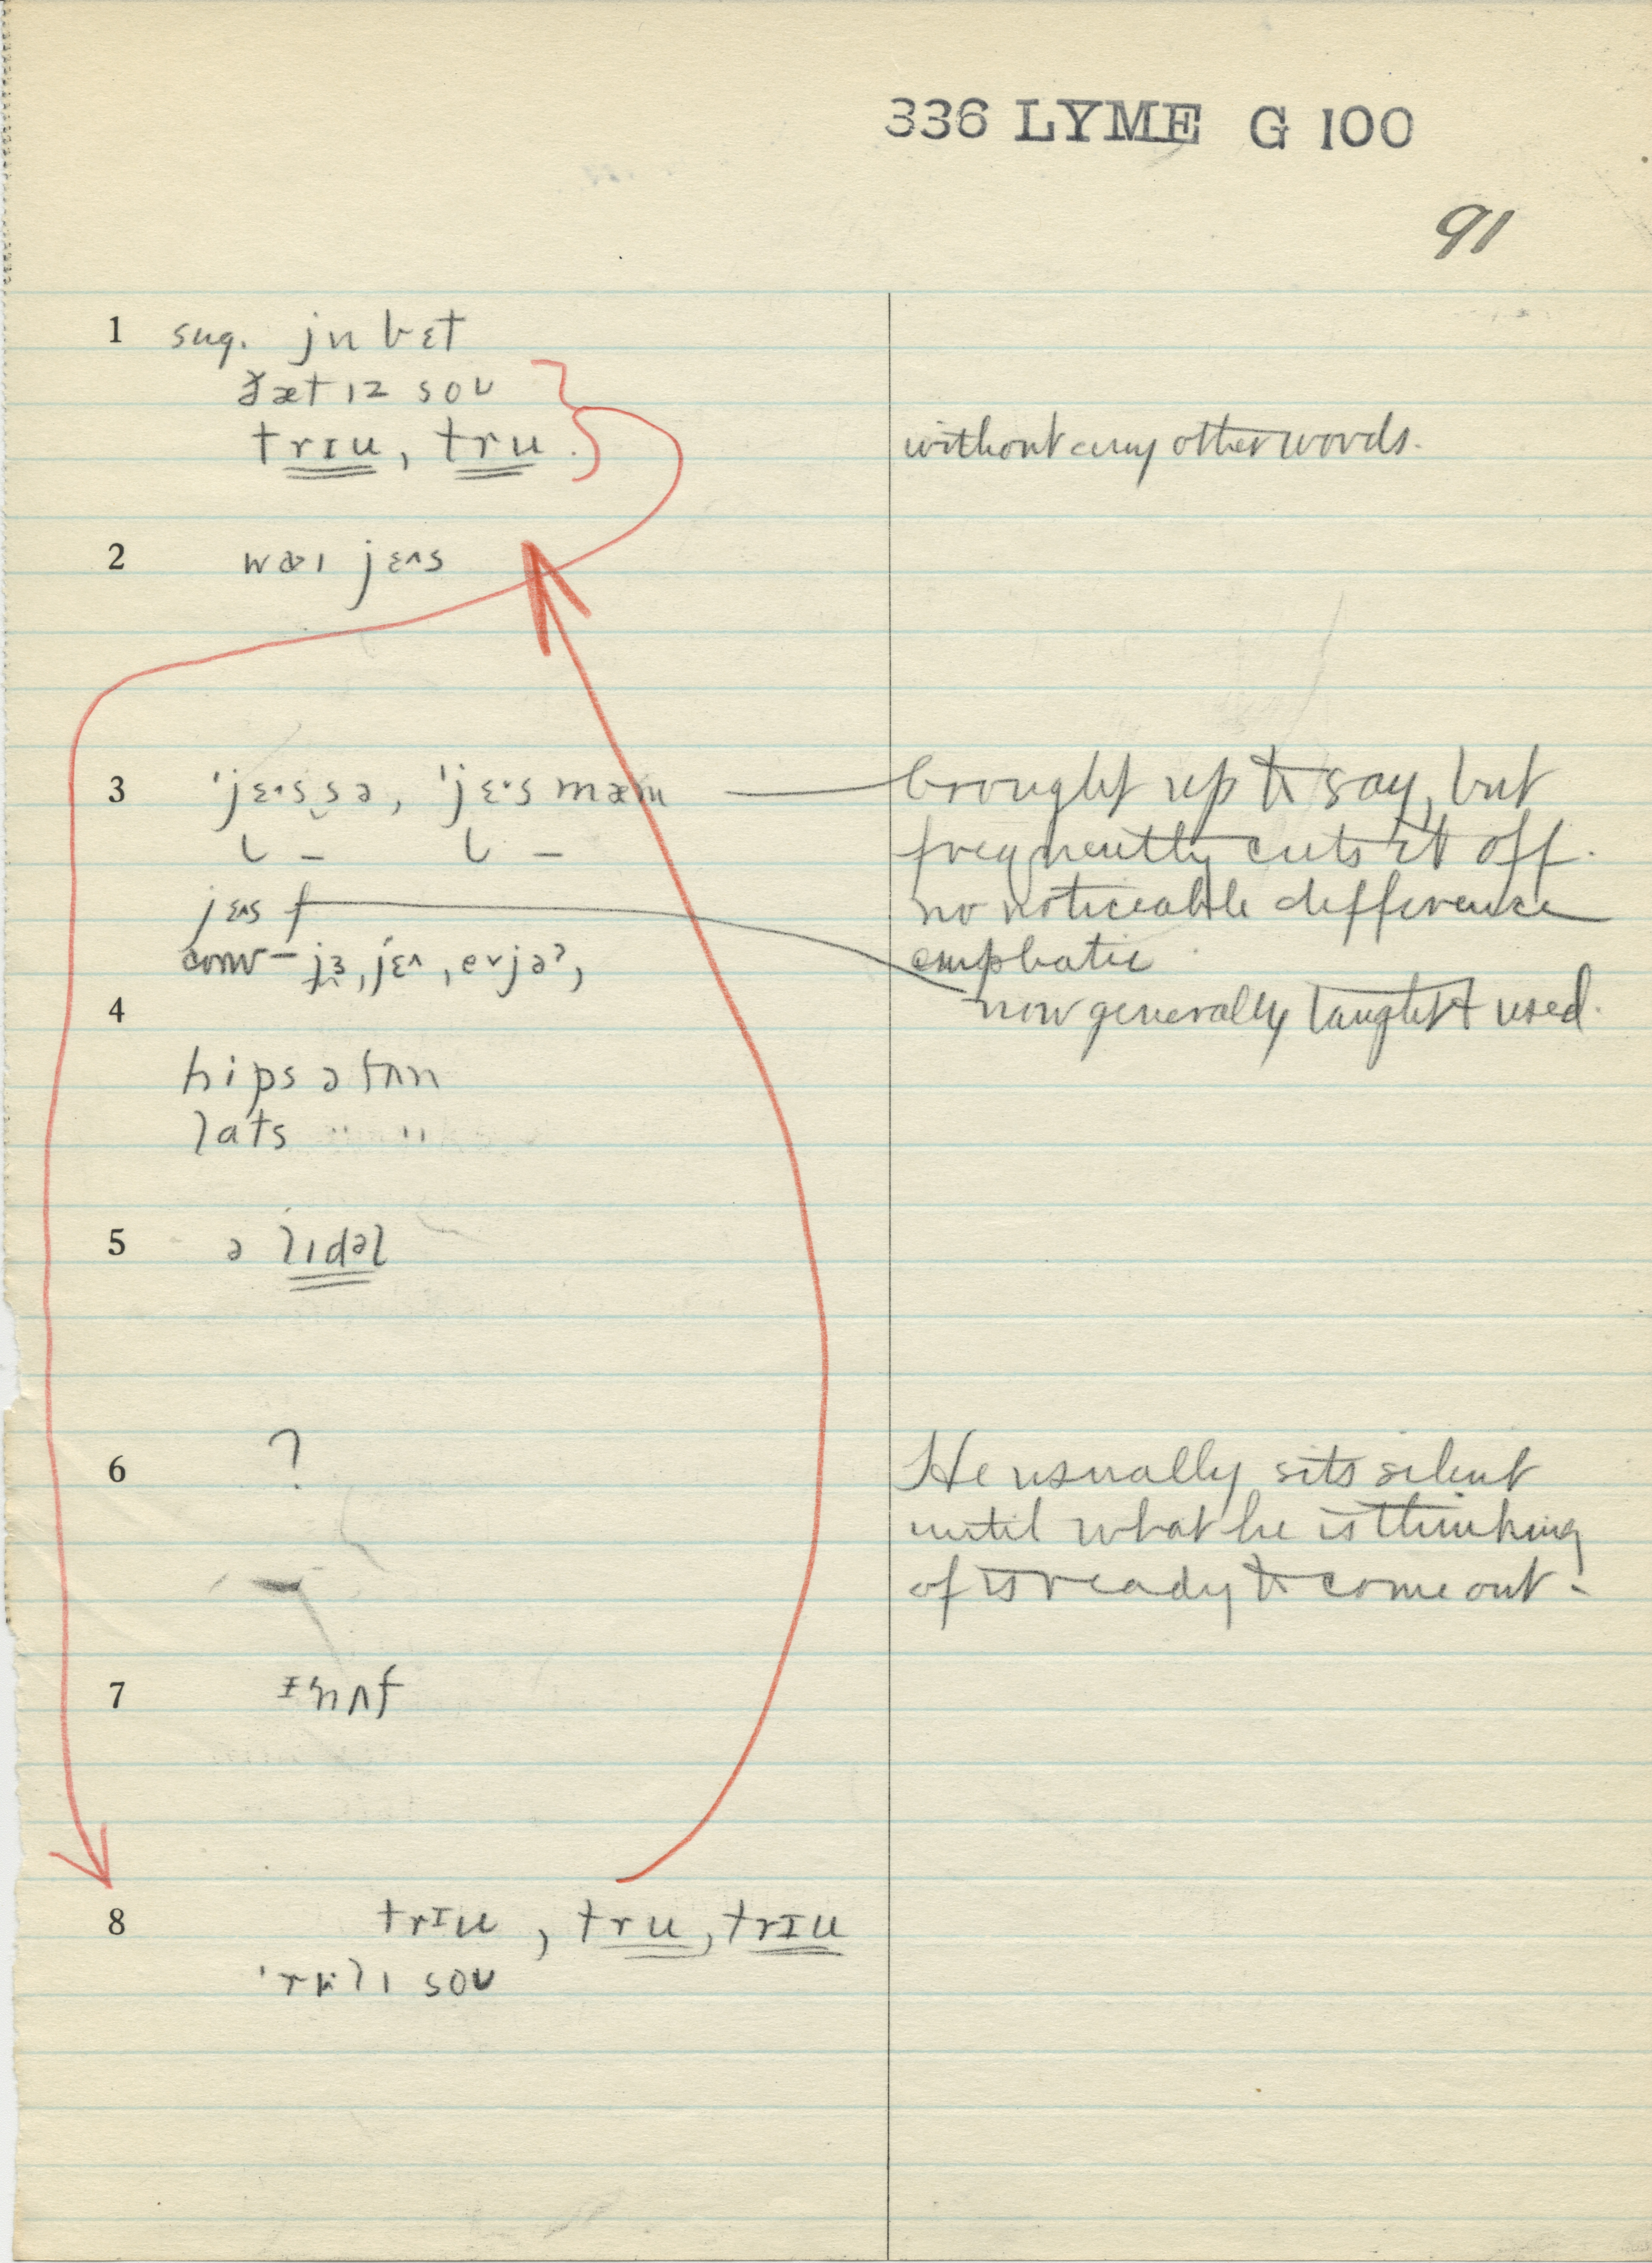 336 LYME G 100
91
1 sug. ju bɛt
ðæt ɪz soʊ
trɪu, tru. without any other words.
2 waɪ jɛ^s
3 'jɛ·s sə, 'jɛ·s mæm — brought up to say, but
frequently cuts it off.
jɛ^s no noticeable difference
conv – jɜ, jɛ^, emphatic
4 now generally taught & used.
hips ə fʌn
lats " "
5 ə lɪdəl
6 ? He usually sits silent
until what he is thinking
of is ready to come out.
7 ɪ'nʌf
8 trɪu, tru, trɪu
soʊ